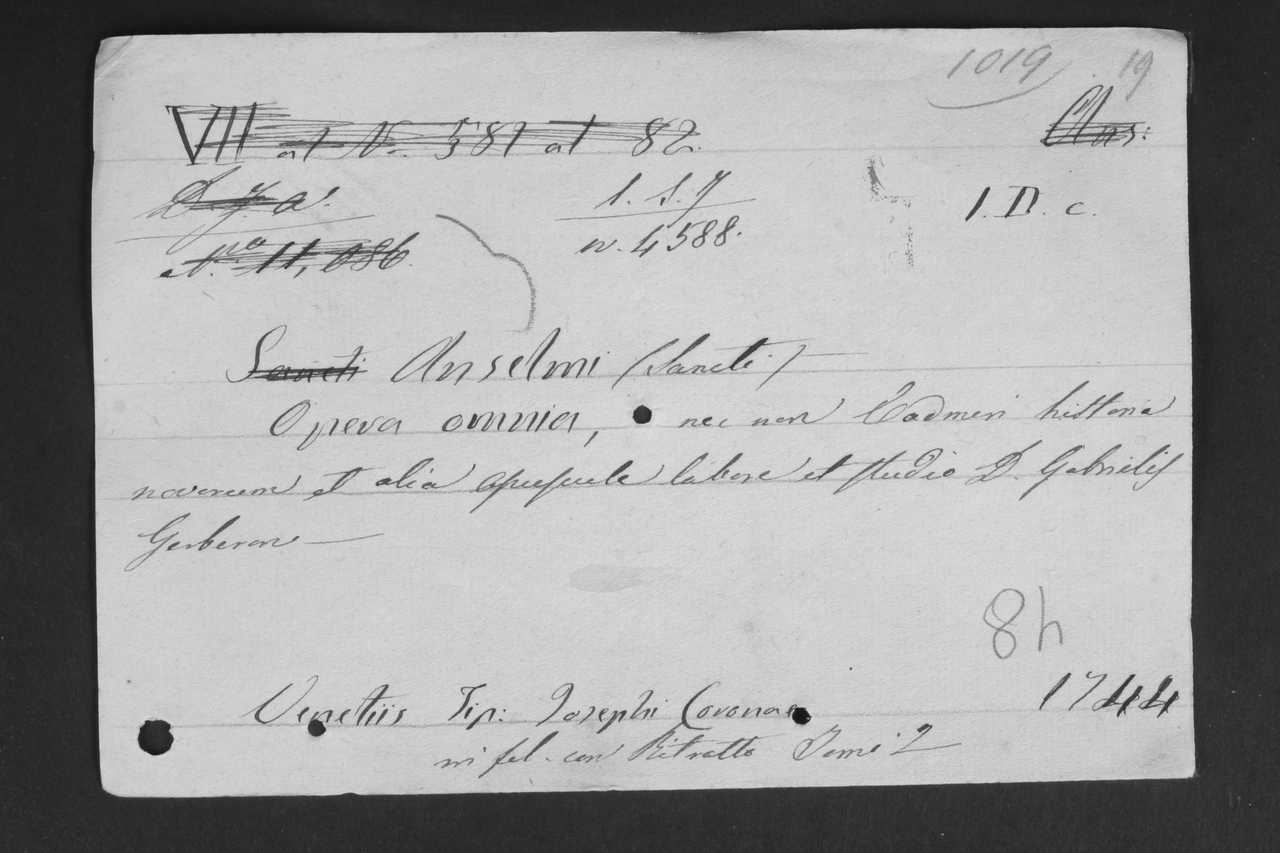 1019 19
VII al No. 581 al 82. Clas:
D. J. a. 1. S. J I. D. c.
No 11,086. n. 4588.
Sancti Anselmi (Sancti)
Opera omnia, nec non Eadmeri historia
novorum et alia opuscula labore et studio D. Gabrielis
Gerberon
84
Venetiis Tip: Josephi Corona 1744
in fol. con Ritratto Tomi 2